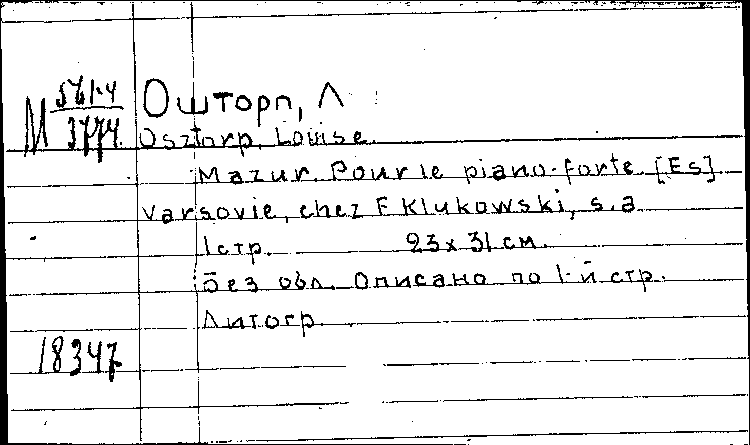 М 561-4/3774. Ошторп, Л
Osztorp, Louise.
Mazur. Pour le piano-forte. [Es].
Varsovie, chez F Klukowski, s.a
1 стр. 23 x 31 см.
Без обл. Описано по 1-й стр.
Литогр.
18347